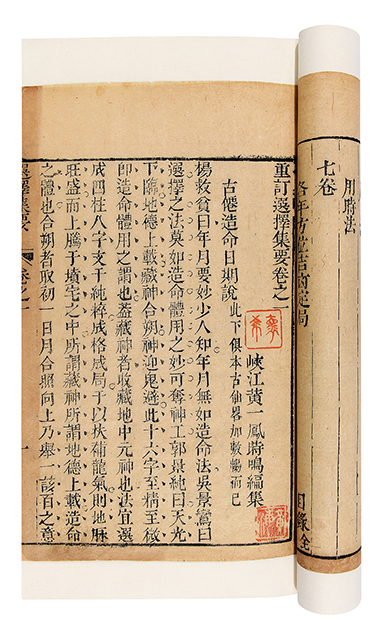 七卷
用時法
目錄全
重訂選擇集要卷之一
峽江黃一鳳時鳴編集
古僊造命日期說
此下俱本古仙畧加敷暢而已
楊救貧曰年月要妙少人知年月無如造命法吳景鸞曰
選擇之法莫如造命體用之妙可奪神工郭景純曰天光
下臨地德上載藏神合朔神迎鬼避此十六字至精至微
即造命體用之謂也葢藏神者收藏地中元神也法宜選
成四柱八字支干純粹成格成局于以扶補龍氣則地脉
旺盛而上騰于墳宅之中所謂藏神所謂地德上載造命
之體也合朔者取初一日月合照向上乃舉一該百之意
選擇集要
卷之一
一